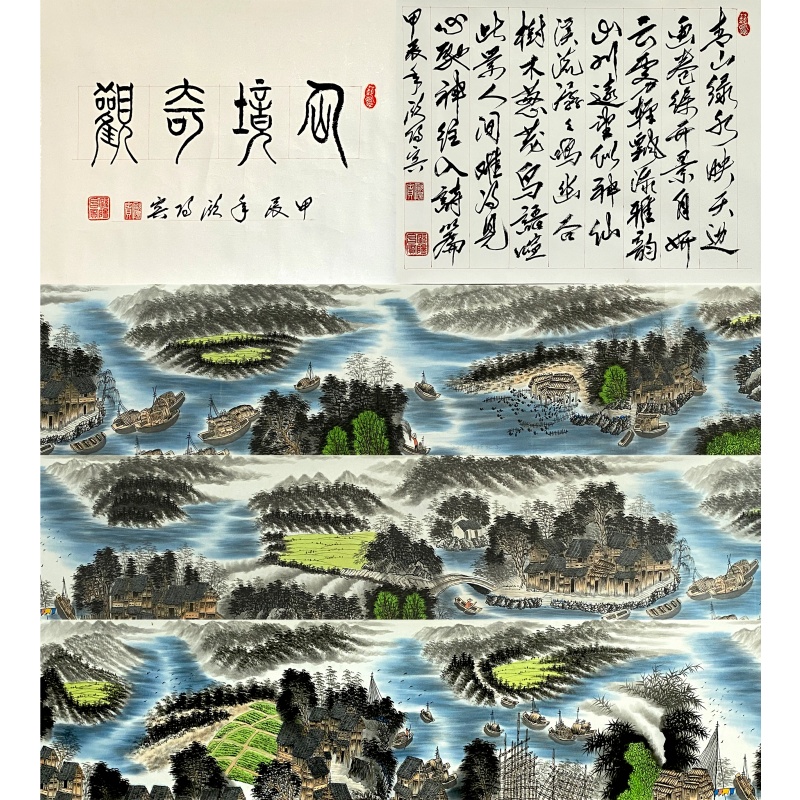 仙境奇觀
甲辰年欧阳宾
青山绿水映天边
画卷缓开景自妍
云雾轻飘添雅韵
山川遠望似神仙
溪流潺々鸣幽谷
樹木葱茂鸟語喧
此景人间难得见
心驰神往入詩篇
甲辰年欧阳宾